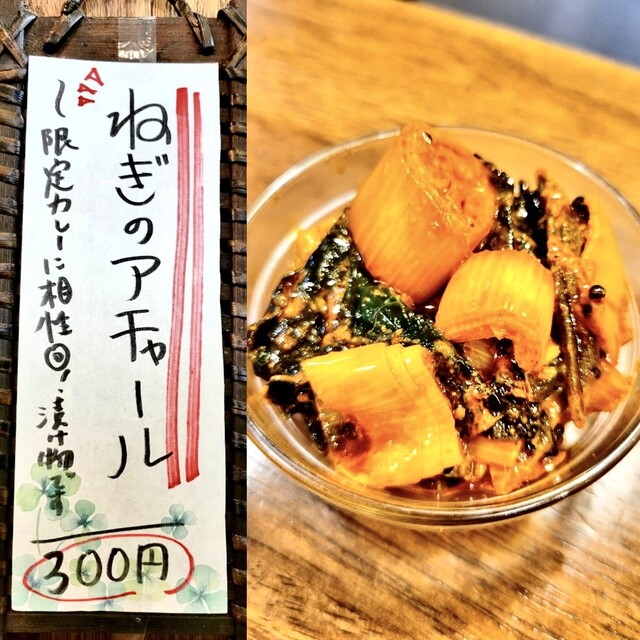 ねぎのアチャール
限定カレーに相性◎!漬け物です
300円